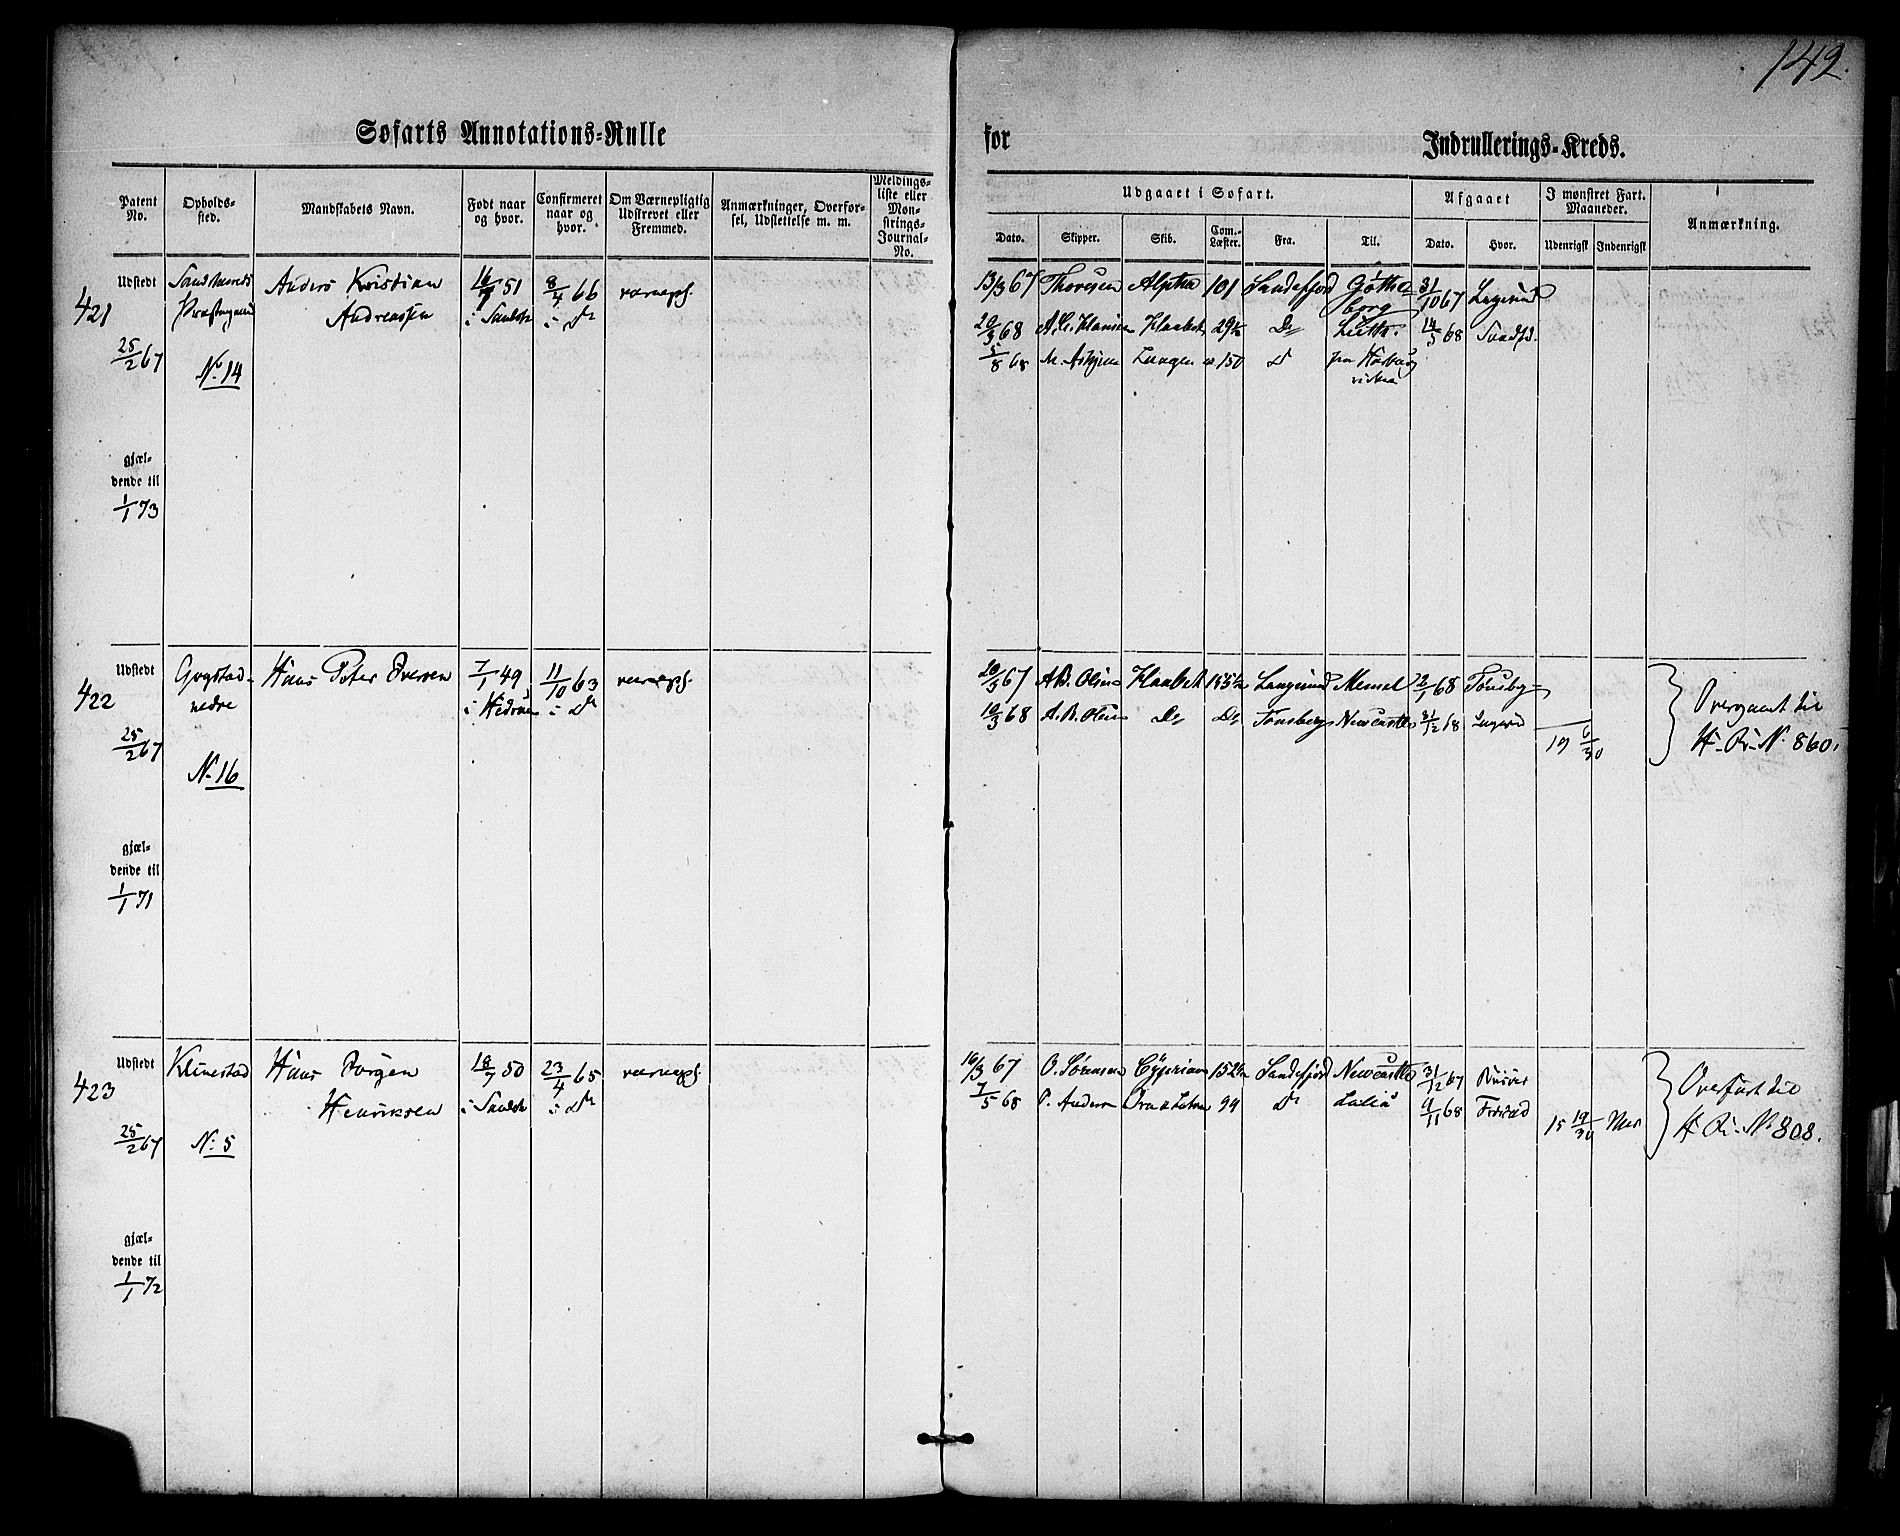 142.
Søfarts Annotations-Rulle for Indrullerings-Kreds.
Patent No.
Opholds-sted.
Mandskabets Navn.
Født naar og hvor.
Confirmeret naar og hvor.
Om Værnepligtig Udskrevet eller Fremmed.
Anmærkninger, Overførsel, Udslettelse m. m.
Meldings-liste eller Mønstrings-Journal-No.
Udgaaet i Søfart.
Dato.
Skipper.
Skib.
Com.-Læster.
Fra.
Til.
Afgaaet
Dato.
Hvor.
I mønstret Fart. Maaneder.
Udenrigsk
Indenrigsk
Anmærkning.
421
Udstedt
25/2 67
gjæl-
dende til
1/1 73
Præstegaard
No 14
Anders Kristian
Andreassen
51
8/4 66
i Do
værnepl.
13/3 67 Thoresen Alpha 101 Sandefjord Gøthe-
borg 31/10 67 Langesund
20/3 68 Haabet Do 14/5 68 Sandfd.
5/8 68 150 Do fra
422
Udstedt
25/2 67
gjæl-
dende til
1/1 71
Gogstad
nedre
No 16
Hans Peter Iversen
7/1 49
11/10 63
i Do
værnepl.
20/3 67 A. B. Olsen Haabet Langesund Memel 2/1 68 Tønsbg
10/3 68 A. B. Olsen Do Do Tønsberg Newcastle 31/12 68
19 6/30
Overgaaet til
H. R. No. 860.
423
Udstedt
25/2 67
gjæl-
dende til
1/1 72
Klinestad
No 5
Hans Jørgen
Henriksen
18/7 50
23/4 65
i Do
værnepl.
16/3 67 O. Sørensen Cyprian Sandefjord Newcastle 31/12 67
7/5 68 P. Anders 99 Do 9/11 68
15 19/30
Overført til
H. R. No 808.